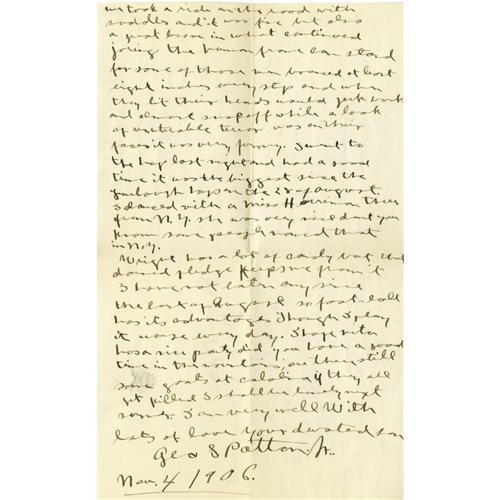 we took a ride on the road with
saddles and it was fine but also
a great lesson in what continued
joing the human frame can stand
for some of those men bounced at least
eight inches every step and when
they lit their heads would jerk back
and almost snap off while a look
of unuterable terror was on their
faces it was very funny. I went to
the hop last night and had a good
time it was the biggest since the
furlough hop on the 28 of august
I danced with a Miss Harriman there
from N.Y. she was very nice dont you
know some people named that
in N.Y.
Wright has a lot of candy but the
pledge keeps me from it
I have not eaten any since
the last of August so foot-ball
has its advantages though I play
it worse every day. I hope nita
has a nice party did you have a good
time in the mountains, are there still
some goats at catalina if they all
get killed I shall be lonely next
summer. I am very well With
lots of love your devoted son
Geo S Patton. Jr.
Nov. 4 1906.